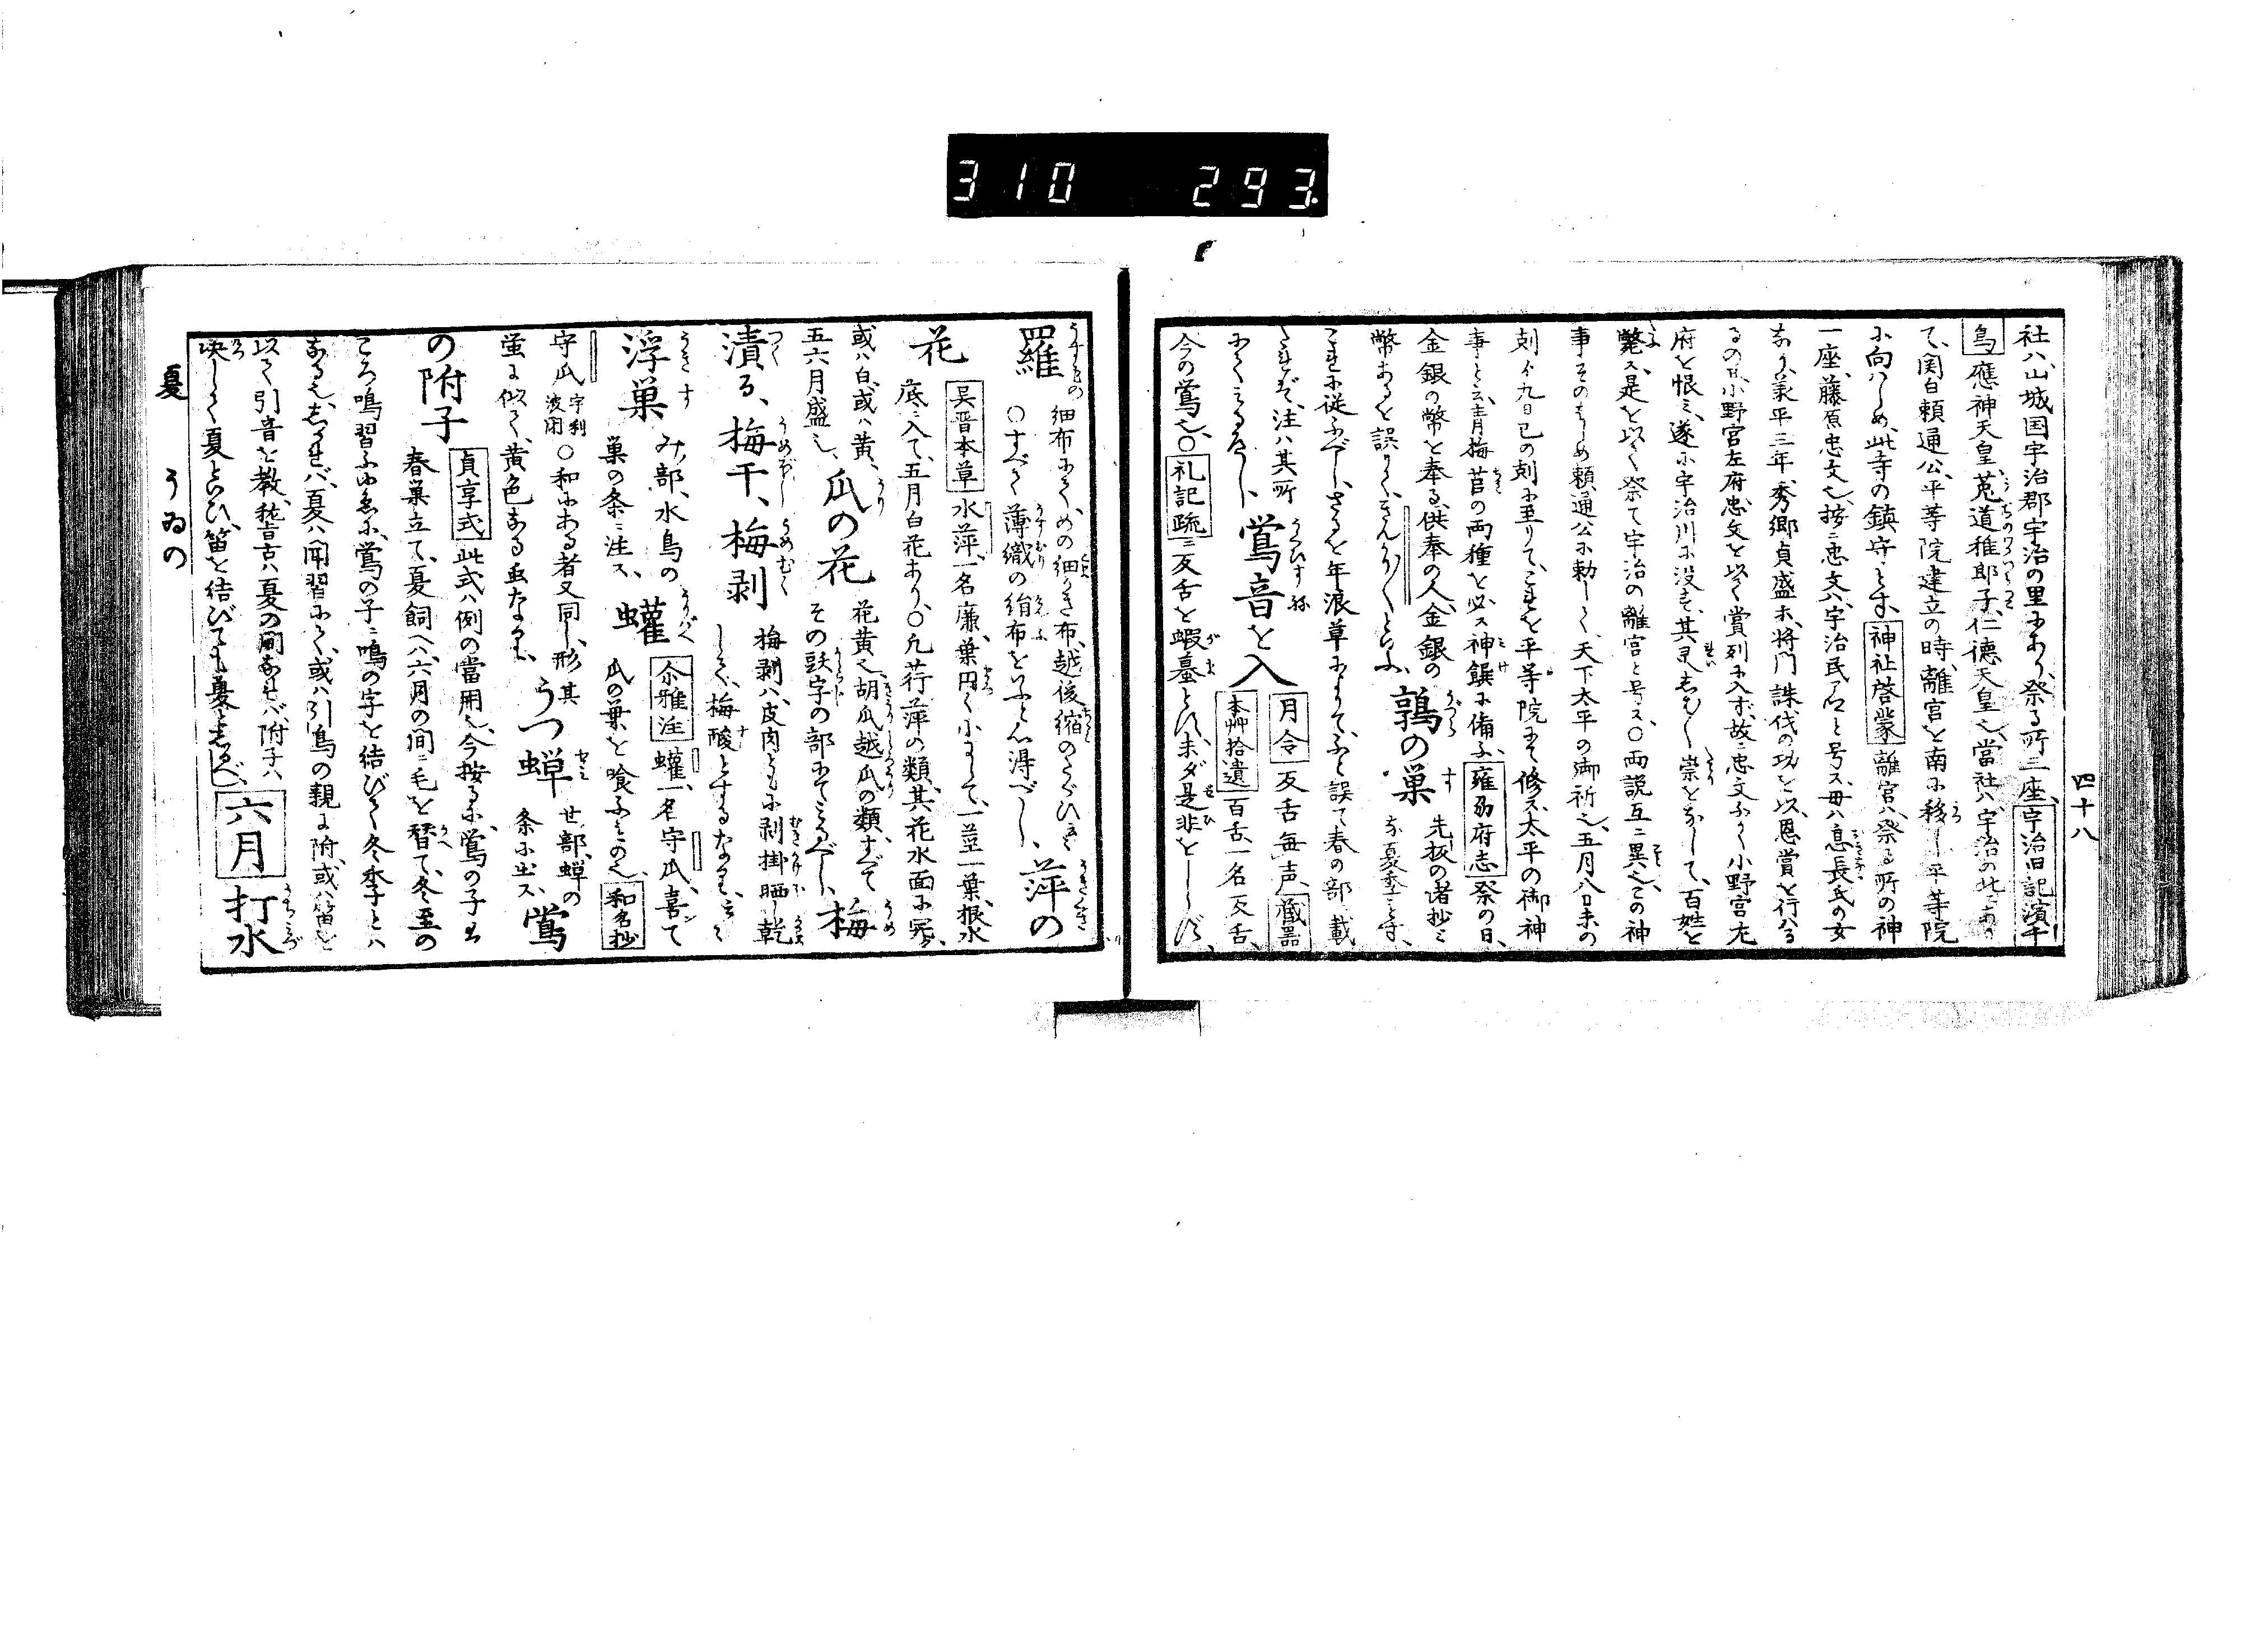 310 293
四十八
社ハ山城国宇治郡宇治の里にあり、祭る所二座、宇治旧記濱千
鳥應神天皇、菟道稚郎子、仁徳天皇也、當社ハ宇治の北にあり
て、関白頼通公、平等院建立の時、離宮を南に移し平等院
に向ハしめ、此寺の鎮守とす、神社啓蒙離宮ハ祭る所の神
一座、藤原忠文也、按ニ忠文ハ宇治民部と号ス、毋ハ息長氏の女
なり、承平三年、秀郷貞盛ホ、将門誅伐の功を以、恩賞を行ハる
るの時、小野宮左府忠文を以て賞列に入ず、故ニ忠文ふかく小野宮左
府を恨ミ、遂に宇治川に没す、其灵あらハし、祟をなして、百姓を
斃ス、是を以て祭て宇治の離宮と号ス、○両説互ニ異也、この神
事そのはじめ頼通公に勅して、天下太平の御祈也、五月八日未の
刻ゟ九日巳の刻に至りて、これを平等院にて修ス、太平の御神
事と云、青梅苔の両種を必ス神饌に備ふ、雍州府志祭の日、
金銀の幣を奉る、供奉の人、金銀の
幣あるを誤りて、きんがり〱といふ、鶉の巣先板の諸抄ミ
な夏季とす、
これに従ふべし、さるを年浪草によりて、ふと誤て春の部ニ載
たれど、注ハ其所
にてミるべし、鶯音を入月令反舌毎声、蔵器
本艸拾遺百舌、一名反舌、
今の鶯也、○礼記疏ニ反舌を蝦蟇とす、未ダ是非をしらず、
羅細布にて、めの細かき布、越後縮のたぐひ也、
○すべて薄織の絹布をいふと心得べし、萍の
花呉晋本草水萍、一名廉、葉円く小にして、一茎一葉、根水
底ニ入て、五月白花あり、○凡荇萍の類、其花水面に宛ふ、
或ハ白、或ハ黄、
五六月盛也、瓜の花花黄也、胡瓜越瓜の類、すべて
その頭字の部にてミるべし、梅
漬る、梅干、梅剥梅剥ハ、皮肉ともに剥掛晒し乾
して、梅酸とするなり、云云
浮巣ミ部、水鳥の
巣の条ニ注ス、蠸尒雅注蠸、一名守瓜、喜ンて
瓜の葉を喰ふもの也、和名抄
守瓜宇利波閇○和にある者又同し、形其
蛍に似て、黄色なる虫なり、うつ蝉せ部、蝉の
条に出ス、鶯
の附子貞享式此式ハ例の當用也、今按るに、鶯の子は
春巣立て、夏飼ハヘ、六月の間ニ毛を替て、冬至の
ころ鳴習ふゆゑに、鶯の子ニ鳴の字を結びて冬季とハ
なる也、しかれバ、夏ハ聞習にて、或ハ引鳥の親に附、或ハ笛を
以て引音を教、稽古ハ夏の間なれバ、附子ハ
決して夏といひ、笛を結びても夏としるべし、六月打水
夏
うゐの